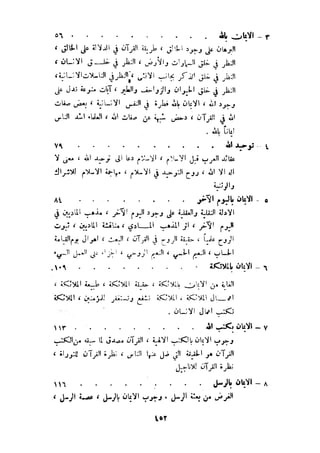 ٣ - الإيمان بالله . . . . . . . . ٥٦
البرهان على وجود الخالق ، طريقة القرآن في الاستدلال على الخالق ،
النظر في خلق السموات والأرض ، النظر في خلق الإنسان ،
النظر في
عجائب ، النظر في خلق الحيوان والطير والحشرات ، آيات متنوعة تدل على
وجود الله ، الإيمان بالله فطرة في النفس الإنسانية ، بعض صفات
الله في القرآن ، بعض شبه عن صفات الله ، العقاد أشد الناس
إيماناً بالله .
٤ - توحيد الله . . . . . . . . ٧٩
عقائد العرب قبل الإسلام ، الإسلام دعا إلى توحيد الله ، معنى لا
إله إلا الله ، روح التوحيد في الإسلام ، مهاجمة الإسلام للإشراك
والوثنية
٥ - الإيمان باليوم الآخر . . . . . . . . ٨٤
الأدلة النقلية والعقلية على وجود اليوم الآخر ، مذهب الماديين في
اليوم الآخر ، أثر المذهب المادي ، مناقشة الماديين ، ثبوت
الروح علمياً ، حقيقة الروح في القرآن ، البعث ، أهوال يوم القيامة
والحساب ، النعيم الحسي ، النعيم الروحي ، جزاء العمل السيء
٦ - الإيمان بالملائكة . . . . . . . . ١٠٩
الغاية من الإيمان بالملائكة ، حقيقة الملائكة ، طبيعة الملائكة ،
أعمال الملائكة ، الملائكة تشفع وتستغفر للمؤمنين ، الملائكة
تكتب أعمال الإنسان .
٧ - الإيمان بكتب الله . . . . . . . . ١١٣
وجوب الإيمان بالكتب الإلهية ، القرآن مصدق لما سبقه من الكتب
القرآن هو الحقيقة التي ضل عنها الناس ، نظرة القرآن للتوراة ،
نظرة القرآن للإنجيل
٨ - الإيمان بالرسل . . . . . . . . ١١٦
الغرض من بعثة الرسل ، وجوب الإيمان بالرسل ، عصمة الرسل ،
٤٥٢